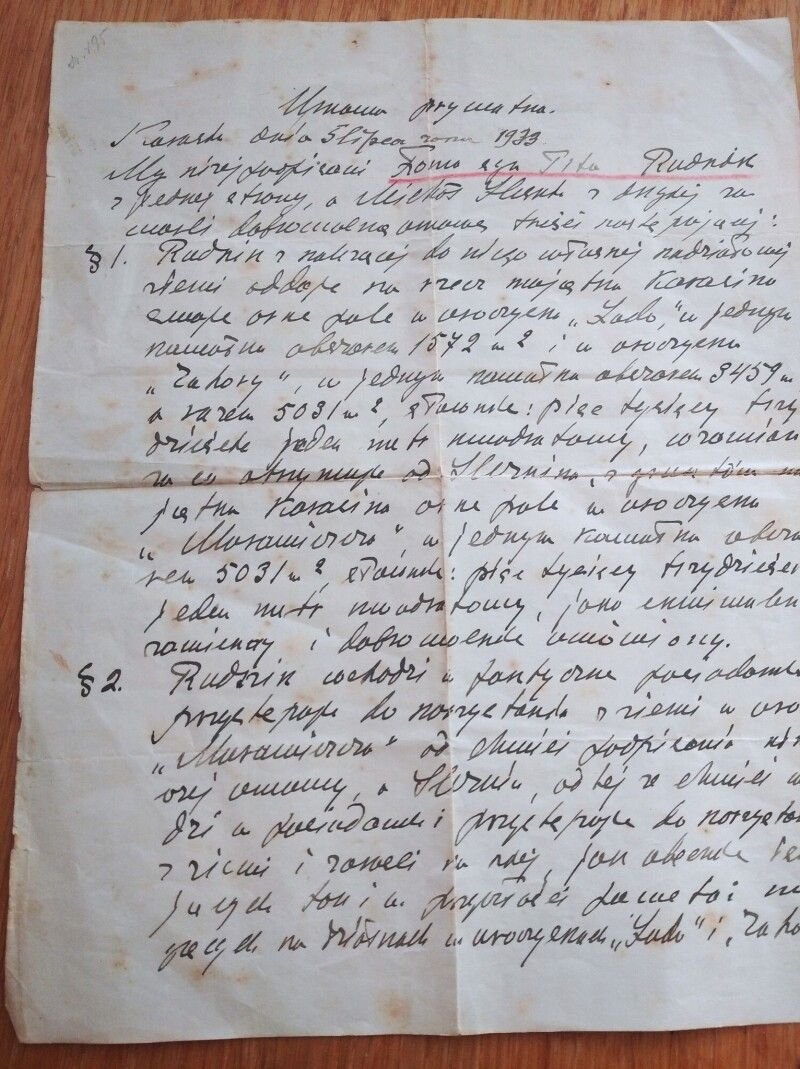 Umowa prywatna.
dnia 5 lipca roku 1933
My niżej podpisani Foma syn Tita Rudzik
z jednej strony, a Michał z drugiej za
warli dobrowolną umowę treści następującej:
§ 1. Rudzik z należącej do niego własnej nadziałowej
ziemi oddaje na rzecz majątku Karasina
swoje orne pole w uroczysku „Lado”, w jednym
kawałku obszarem 1572 m2 i w uroczysku
„Zahory”, w jednym kawałku obszarem 3459 m
a razem 5031 m2, słownie: pięć tysięcy trzy
dzieści jeden metr kwadratowy, wzamian
za co otrzymuje od z gruntów ma
jątku Karasina orne pole w uroczysku
w jednym kawałku obsza
rem 5031 m2, słownie: pięć tysięcy trzydzieści
jeden metr kwadratowy, jako ekwiwalent
zamienny i dobrowolnie umówiony.
§ 2. Rudzik wchodzi w faktyczne posiadanie
przystępuje do korzystania z ziemi w uro
od chwili podpisania niż
szej umowy, a od tej że chwili w
dzi w posiadanie i przystępuje do korzysta
z ziemi i zarośli na niej, jak obecnie
jących tak i w przyszłości
jących na działkach w uroczyskach „Lado” i „Zaho